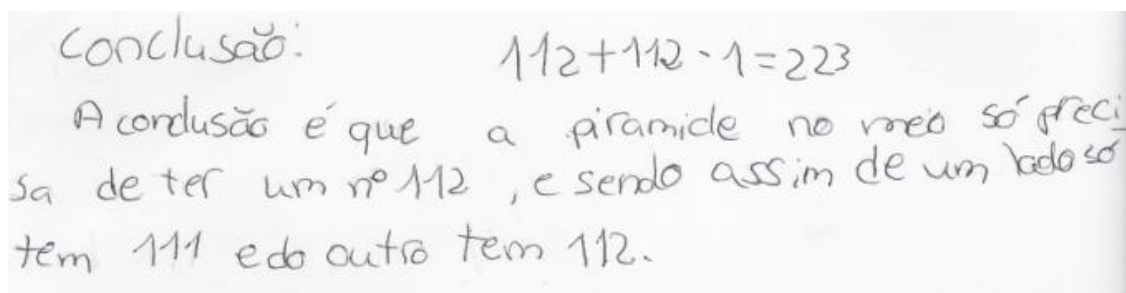 Conclusão:
112+112-1=223
A conclusão é que a piramide no meio só preci-
sa de ter um nº 112, e sendo assim de um lado só
tem 111 e do outro tem 112.